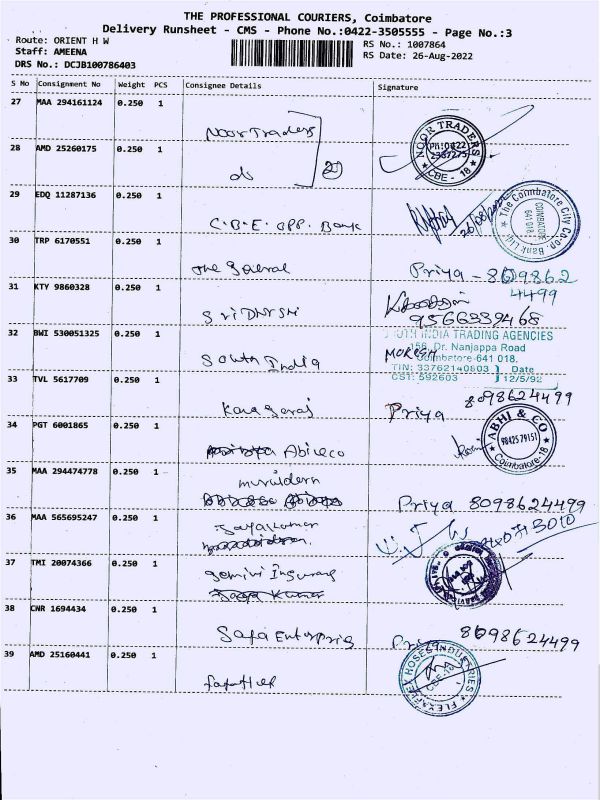 THE PROFESSIONAL COURIERS, Coimbatore
Delivery Runsheet - CMS - Phone No.:0422-3505555 - Page No.:3
Route: ORIENT H W
RS No.: 1007864
Staff: AMEENA
RS Date: 26-Aug-2022
DRS No.: DCJB100786403
S No Consignment No Weight PCS Consignee Details Signature
27 MAA 294161124 0.250 1
Noor Traders
NOOR TRADERS
PH:0422
2387275
CBE - 18
28 AMD 25260175 0.250 1
do
29 EDQ 11287136 0.250 1
C.B.E. opp. Bank
The Coimbatore City Co-op. Bank Ltd.
COIMBATORE
641 018
30 TRP 6170551 0.250 1
The General Priya - 809862
4499
31 KTY 9860328 0.250 1
9566339468
32 BWI 530051325 0.250 1
South India
SOUTH INDIA TRADING AGENCIES
156, Dr. Nanjappa Road
Coimbatore-641 018.
TIN: 33762140803 Date
CST: 592603 12/5/92
33 TVL 5617709 0.250 1
Priya 8098624499
34 PGT 6001865 0.250 1
Abireco
ABHI & CO
98425 79151
Coimbatore-18
35 MAA 294474778 0.250 1
Priya 8098624499
36 MAA 565695247 0.250 1
Jayakumar
37 TMI 20074366 0.250 1
gemini
38 CNR 1694434 0.250 1
Enterpris Priya 8098624499
39 AMD 25160441 0.250 1
FLEXAFLEX HOSES INDUSTRIES
CBE-18